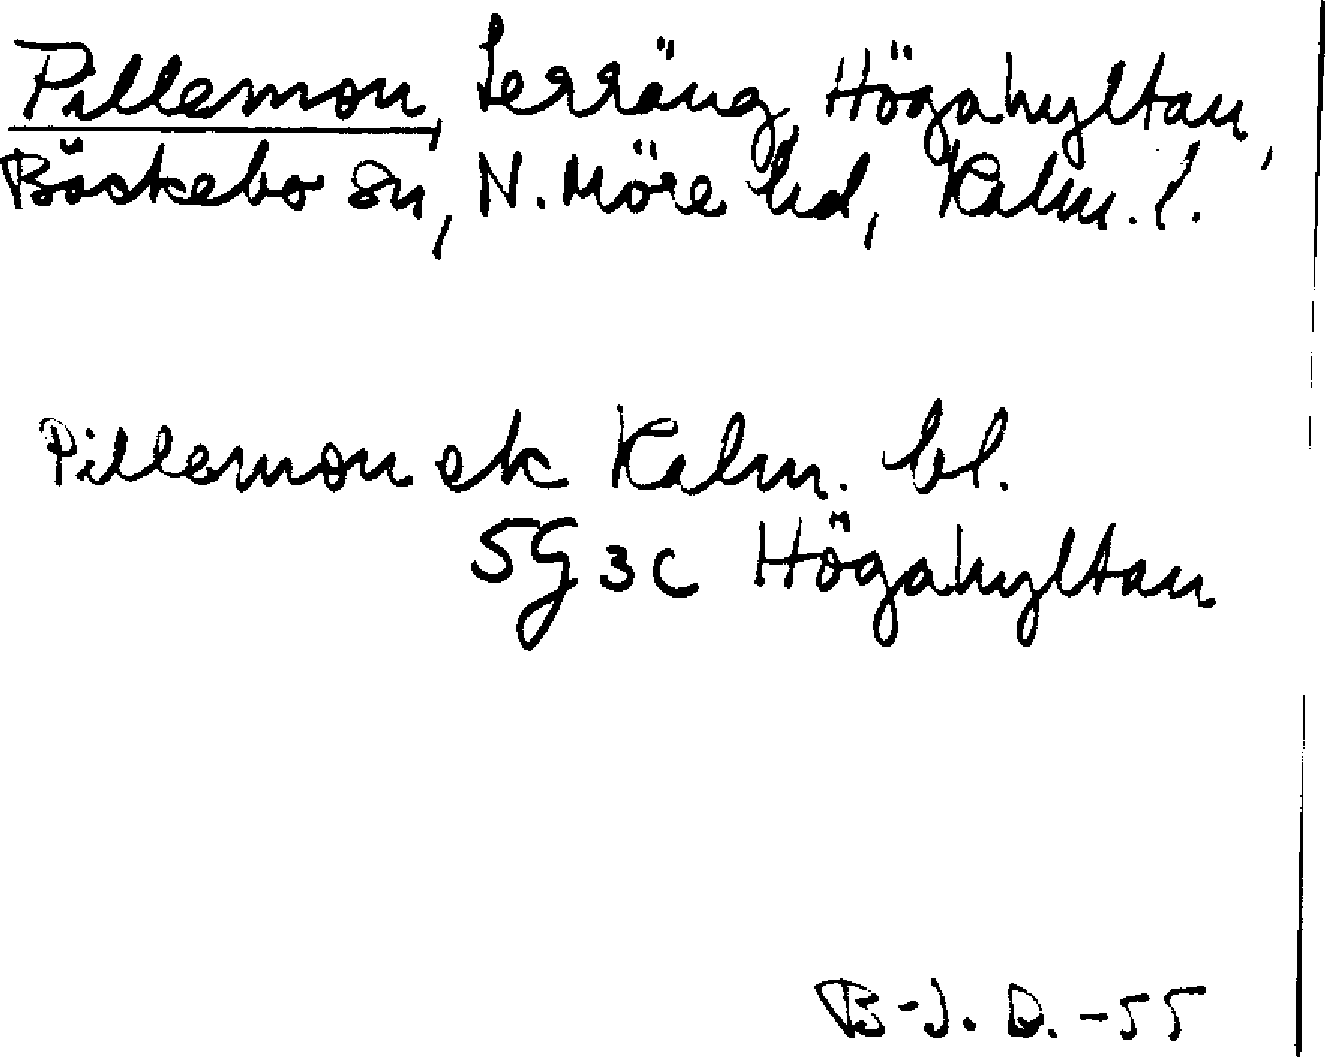 Pillemon, terräng, Högahyltan,
Bäckebo sn, N. Möre hd, Kalm. l.
Pillemon ek Kalm. bl.
5G 3c Högahyltan
B-J. D. -55